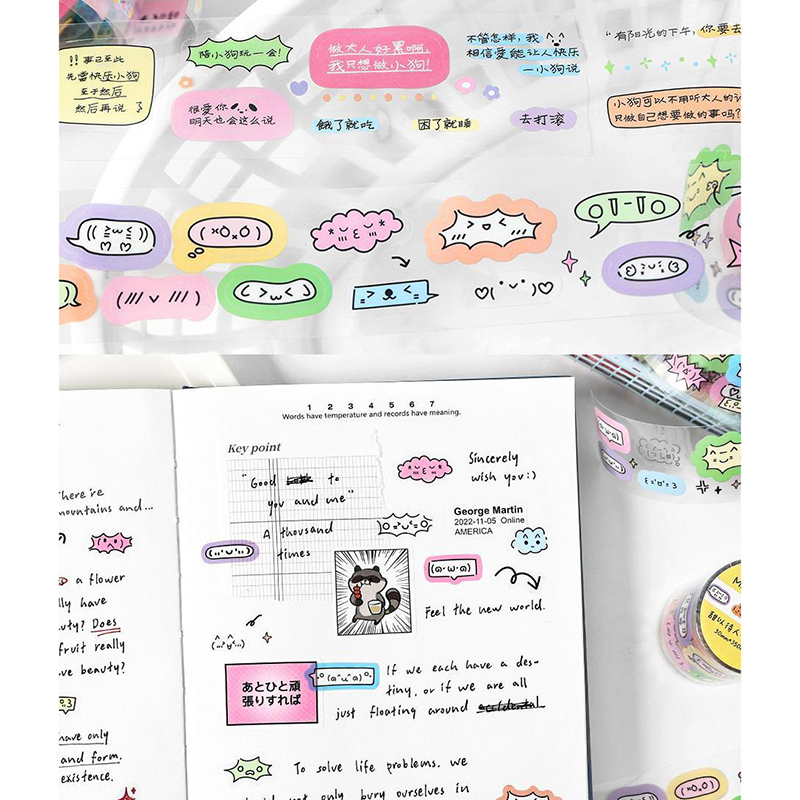 !! 事已至此
先当快乐小狗
至于然后
然后再说了
陪小狗玩一会!
很爱你
明天也会这么说
做大人好累啊,
我只想做小狗!
饿了就吃
困了就睡
去打滚
不管怎样, 我
相信爱能让人快乐
—小狗说
“有阳光的下午, 你要去
小狗可以不用听大人的
只做自己想要做的事吗?
((≥ω≤))
(×O×o)
(*ε*)
(///∨///)
(>ω<)
♡(˘ᵕ˘)♡
1 2 3 4 5 6 7
Words have temperature and records have meaning.
Key point
"Good to
you and me"
A thousand
times
Sincerely
wish you:)
George Martin
2022-11-05 Online
AMERICA
Feel the new world.
あとひと頑
張りすれば
If we each have a des-
tiny, or if we are all
just floating around accidental
To solve life problems, we
only bury ourselves in
There're
mountains and...
a flower
lly have
uty? Does
fruit really
ve beauty?
have only
and form.
existence.